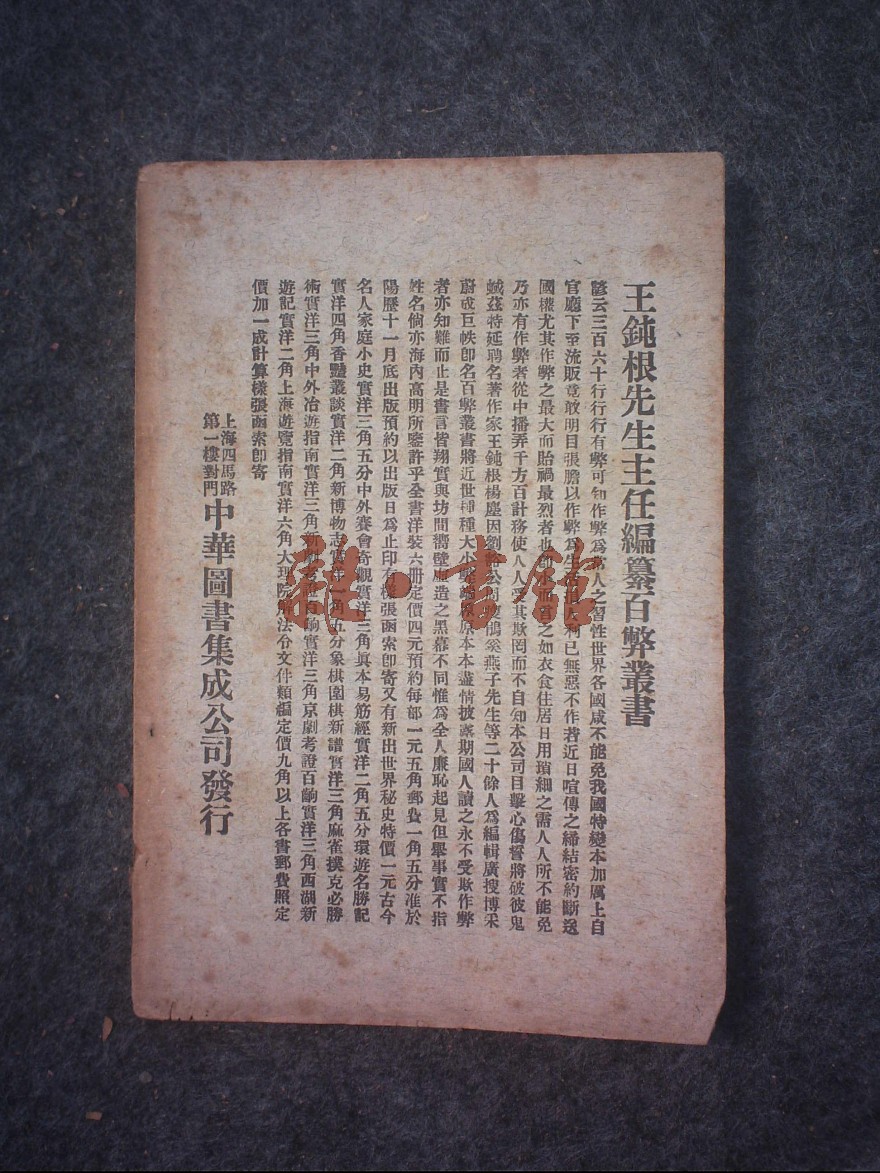 王鈍根先生主任編纂百弊叢書
諺云三百六十行行行有弊可知作弊爲吾人之習性世界各國咸不能免我國特變本加厲上自
官廳下至流販竟敢明目張膽以作弊爲生利己無惡不作若近日喧傳之締結密約斷送
國權尤其作弊之最大而貽禍最烈者也之如衣食住居日用瑣細之需人人所不能免
乃亦有作弊者從中播弄千方百計務使人人受其欺罔而不自知本公司目擊心傷誓將破彼鬼
蜮茲特延聘名著作家王鈍根楊塵因劉燕子先生等二十餘人爲編輯廣搜博采
蔚成巨帙即名百弊叢書將近世種種大小原原本本盡情披露期國人讀之永不受欺作弊
者亦知難而止是書言皆翔實與坊間嚮壁虛造之黑幕不同惟爲全人廉恥起見但舉事實不指
姓名倘亦海內高明所鑒許乎全書洋裝六冊定價四元預約每部一元五角郵費一角五分准於
陽歷十一月底出版預約以出版日爲止印有樣張函索即寄又有新出世界秘史特價一元古今
名人家庭小史實洋三角五分中外賽會奇觀實洋三角眞本易筋經實洋二角五分環遊名勝記
實洋四角香艷叢談實洋二角新博物志實洋一角五分象棋圍棋新譜實洋三角麻雀撲克必勝
術實洋三角中外冶遊指南實洋三角新劇考證百齣實洋三角京劇考證百齣實洋三角西湖新
遊記實洋二角上海遊覽指南實洋六角大理院解法令文件類編定價九角以上各書郵費照定
價加一成計算樣張函索即寄
上海四馬路
第一樓對門
中華圖書集成公司發行
雜·書館